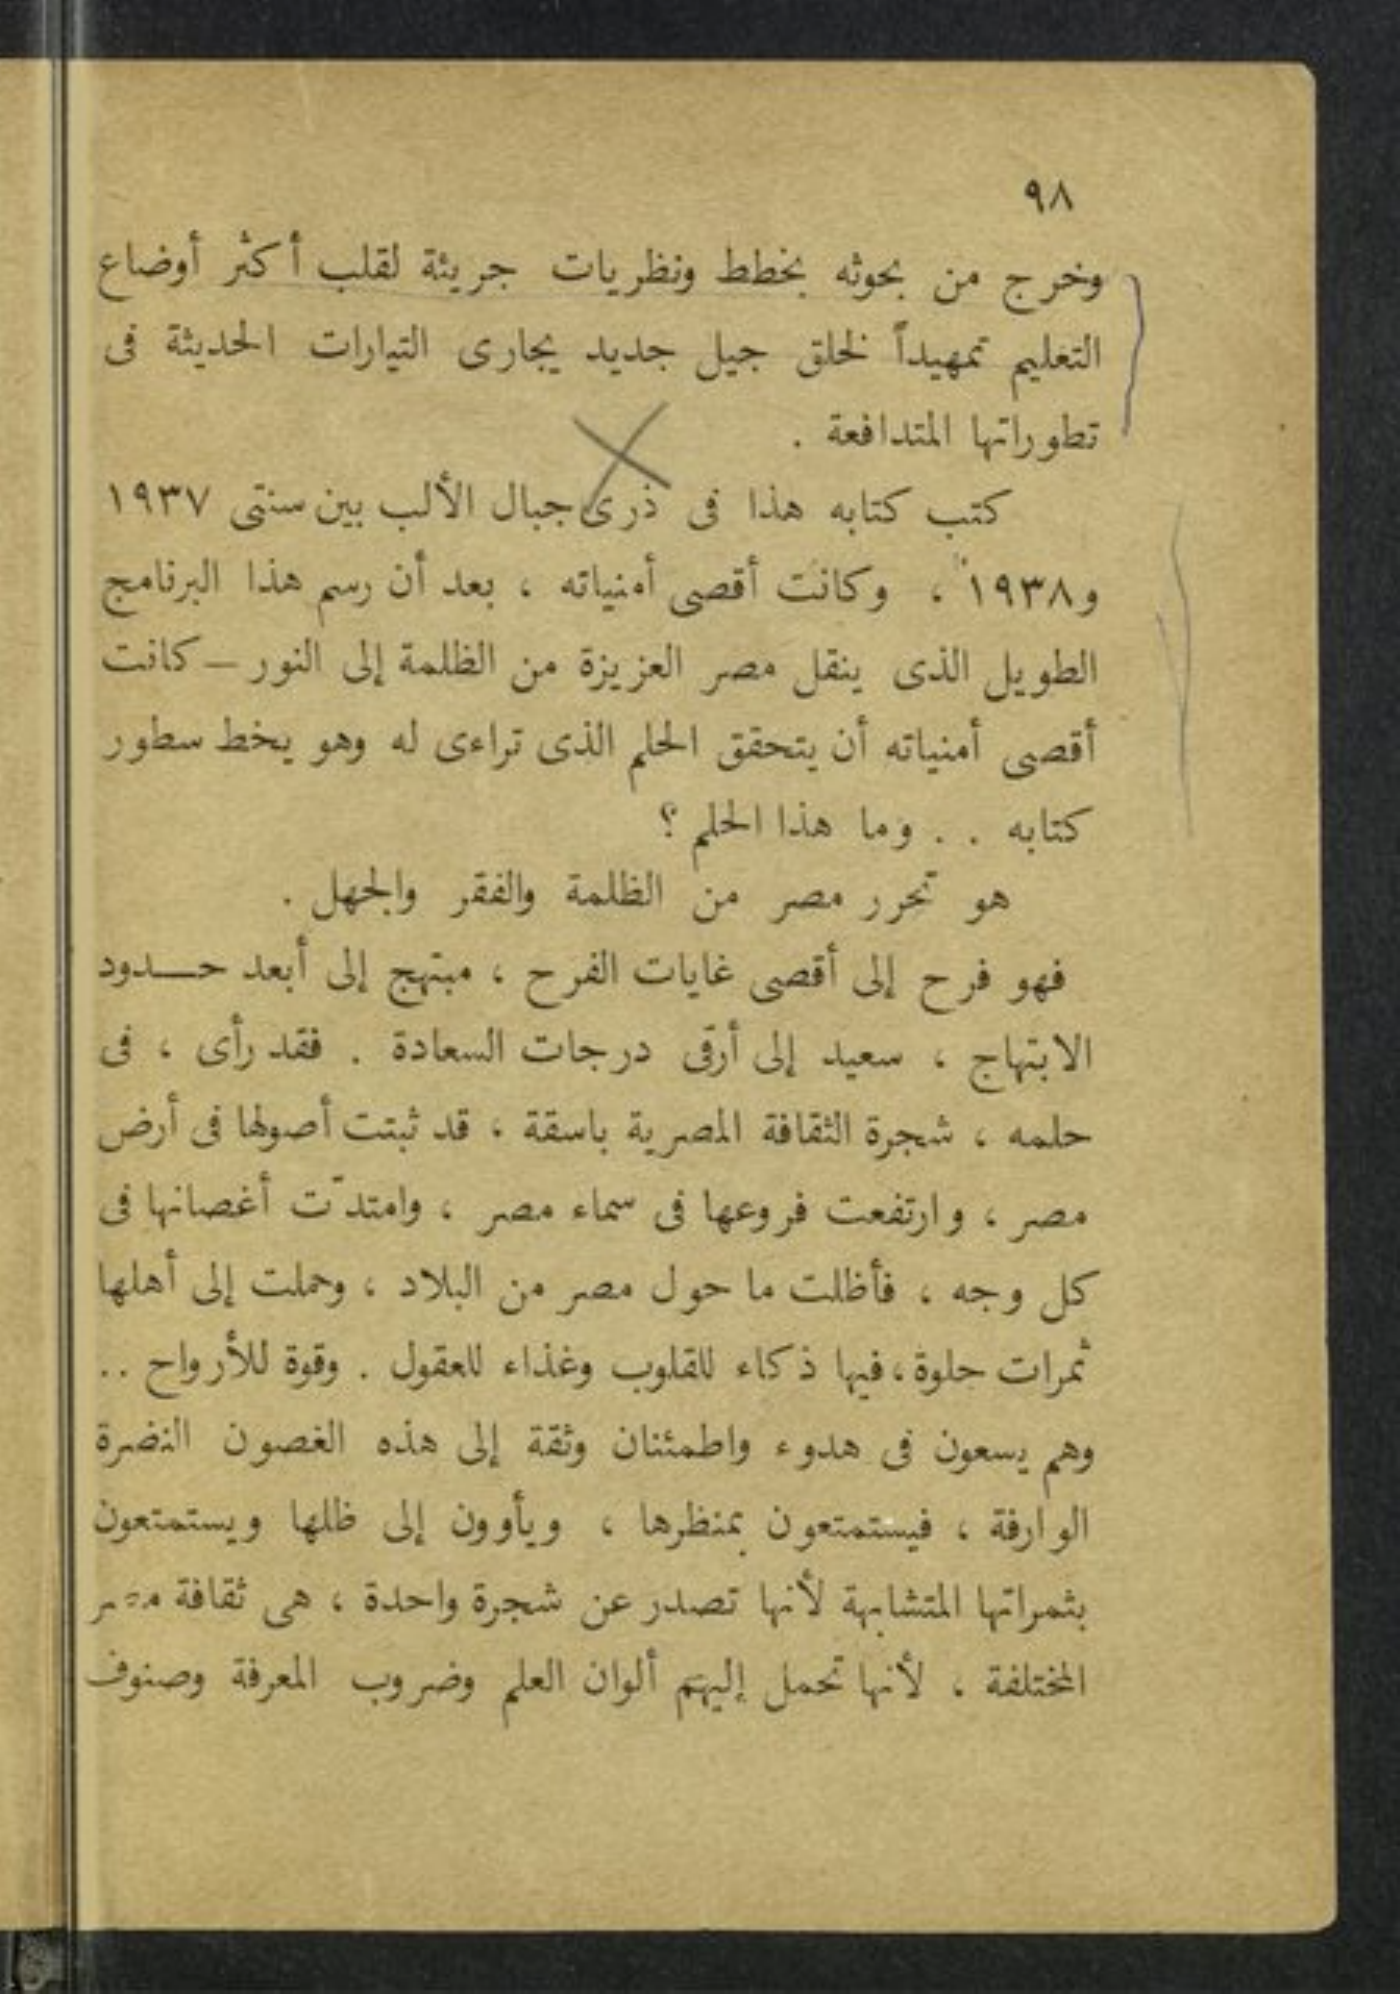 ٩٨
وخرج من بحوثه بخطط ونظريات جريئة لقلب أكثر أوضاع
التعليم تمهيداً لخلق جيل جديد يجارى التيارات الحديثة فى
تطوراتها المتدافعة .
كتب كتابه هذا فى ذرى جبال الألب بين سنتى ١٩٣٧
و١٩٣٨ ، وكانت أقصى أمنياته ، بعد أن رسم هذا البرنامج
الطويل الذى ينقل مصر العزيزة من الظلمة إلى النور — كانت
أقصى أمنياته أن يتحقق الحلم الذى تراءى له وهو يخط سطور
كتابه . . وما هذا الحلم ؟
هو تحرر مصر من الظلمة والفقر والجهل .
فهو فرح إلى أقصى غايات الفرح ، مبتهج إلى أبعد حـــدود
الابتهاج ، سعيد إلى أرقى درجات السعادة . فقد رأى ، فى
حلمه ، شجرة الثقافة المصرية باسقة ، قد ثبتت أصولها فى أرض
مصر ، وارتفعت فروعها فى سماء مصر ، وامتدّت أغصانها فى
كل وجه ، فأظلت ما حول مصر من البلاد ، وحملت إلى أهلها
ثمرات حلوة ، فيها ذكاء للقلوب وغذاء للعقول . وقوة للأرواح ..
وهم يسعون فى هدوء واطمئنان وثقة إلى هذه الغصون النضرة
الوارفة ، فيستمتعون بمنظرها ، ويأوون إلى ظلها ويستمتعون
بثمراتها المتشابهة لأنها تصدر عن شجرة واحدة ، هى ثقافة مصر
المختلفة ، لأنها تحمل إليهم ألوان العلم وضروب المعرفة وصنوف